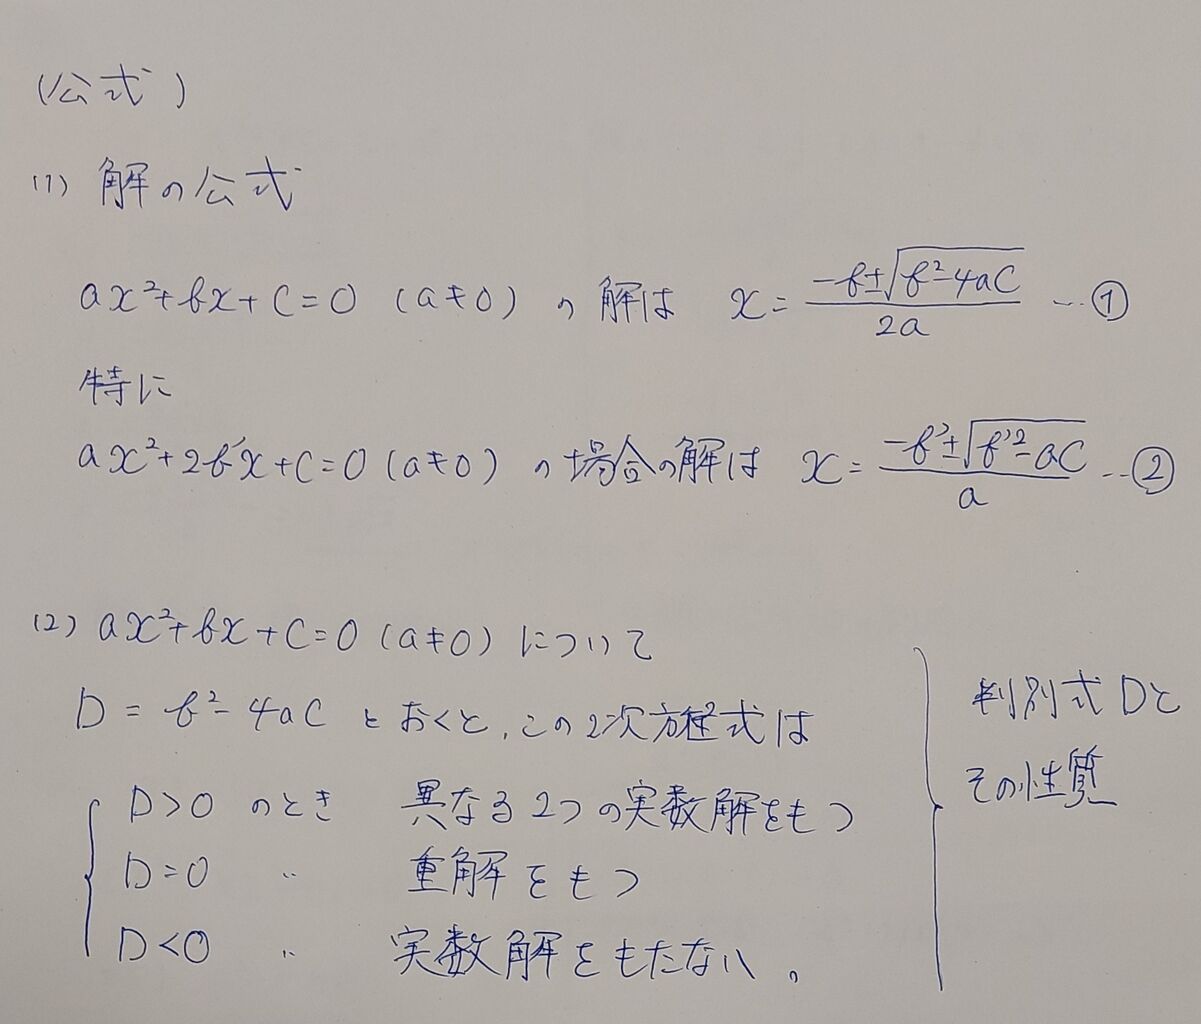 (公式)
(1) 解の公式
ax²+bx+c=0 (a≠0) の解は x=(-b±√(b²-4ac))/2a …①
特に
ax²+2b'x+c=0 (a≠0) の場合の解は x=(-b'±√(b'²-ac))/a …②
(2) ax²+bx+c=0 (a≠0) について
D=b²-4ac とおくと、この2次方程式は
D>0 のとき 異なる2つの実数解をもつ
D=0 〃 重解をもつ
D<0 〃 実数解をもたない。
判別式Dと
その性質